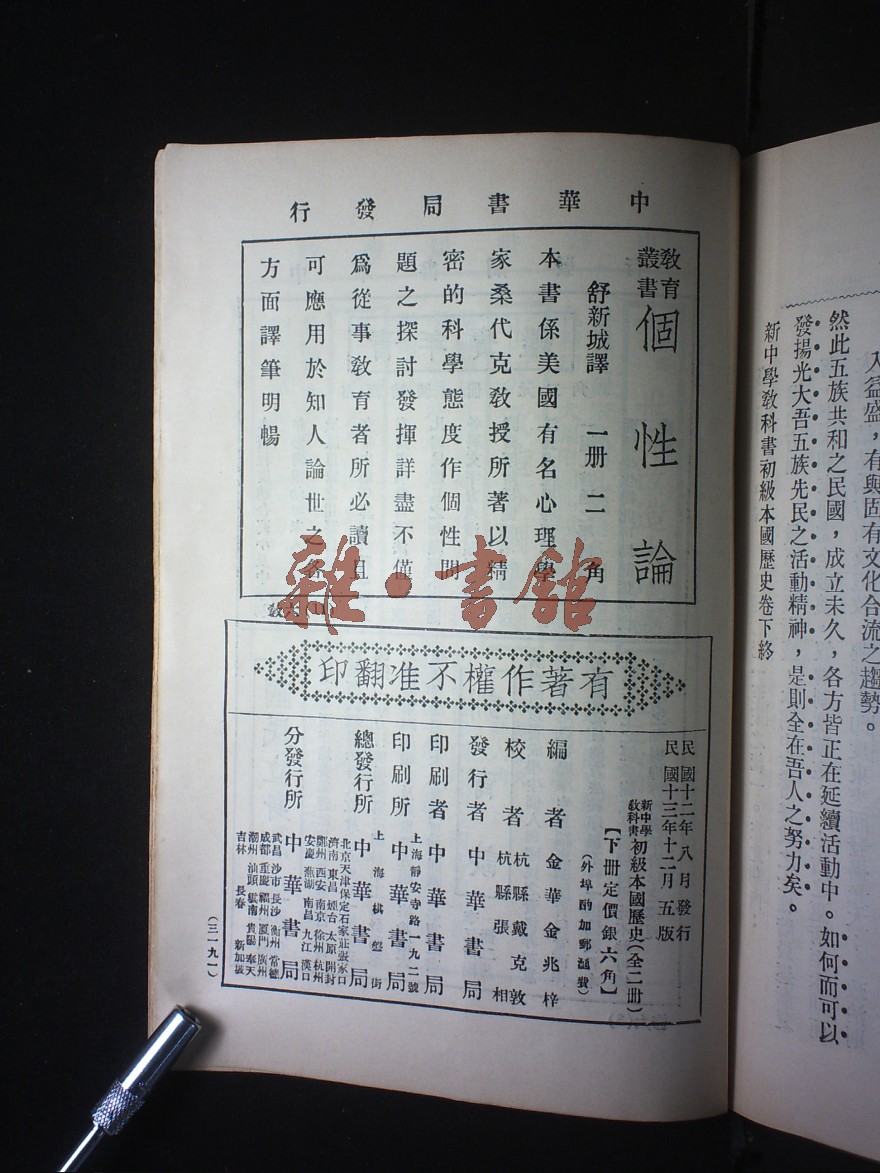 入益盛，有與固有文化合流之趨勢。
然此五族共和之民國，成立未久，各方皆正在延續活動中。如何而可以
發揚光大吾五族先民之活動精神，是則全在吾人之努力矣。
新中學教科書初級本國歷史卷下終
中華書局發行
教育叢書
個性論
舒新城譯 一册 二角
本書係美國有名心理學
家桑代克教授所著以精
密的科學態度作個性問
題之探討發揮詳盡不僅
爲從事教育者所必讀且
可應用於知人論世之各
方面譯筆明暢
雜·書館
有著作權不准翻印
民國十二年八月發行
民國十三年十二月五版
新中學教科書初級本國歷史（全二册）
【下册定價銀六角】
（外埠酌加郵滙費）
編者 金華金兆梓
校者 杭縣戴克敦
杭縣張相
發行者 中華書局
印刷者 中華書局
上海靜安寺路一九二號
印刷所 中華書局
上海棋盤街
總發行所 中華書局
分發行所 中華書局
北京 天津 保定 石家莊 張家口
濟南 東昌 烟台 太原 開封
鄭州 西安 南京 徐州 杭州
安慶 蕪湖 南昌 九江 漢口
武昌 沙市 長沙 衡州 常德
成都 重慶 福州 廈門 廣州
潮州 汕頭 雲南 貴陽 奉天
吉林 長春 新加坡
（三一九一）